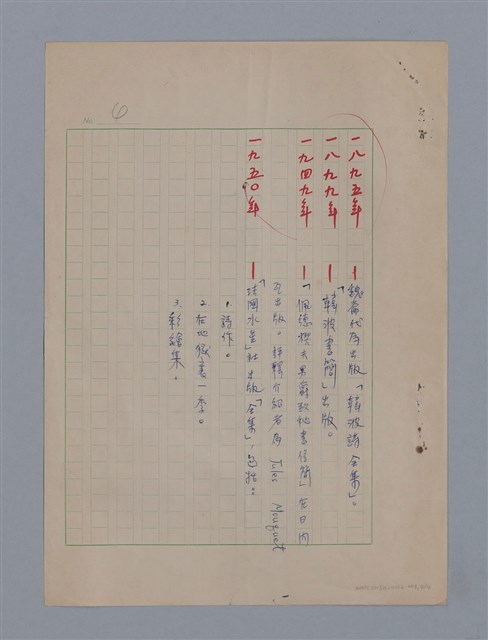 No. 4
一八九五年 — 魏崙代序出版「韓波詩全集」。
一八九九年 — 「韓波書簡」出版。
一九四九年 — 「佩德
書信簡」在日內
瓦出版。 介紹者為 Jules Mouquet
一九五〇年 — 社出版「全集」,包括:
1. 詩作。
2. 在地獄裏一季。
3. 彩繪集。